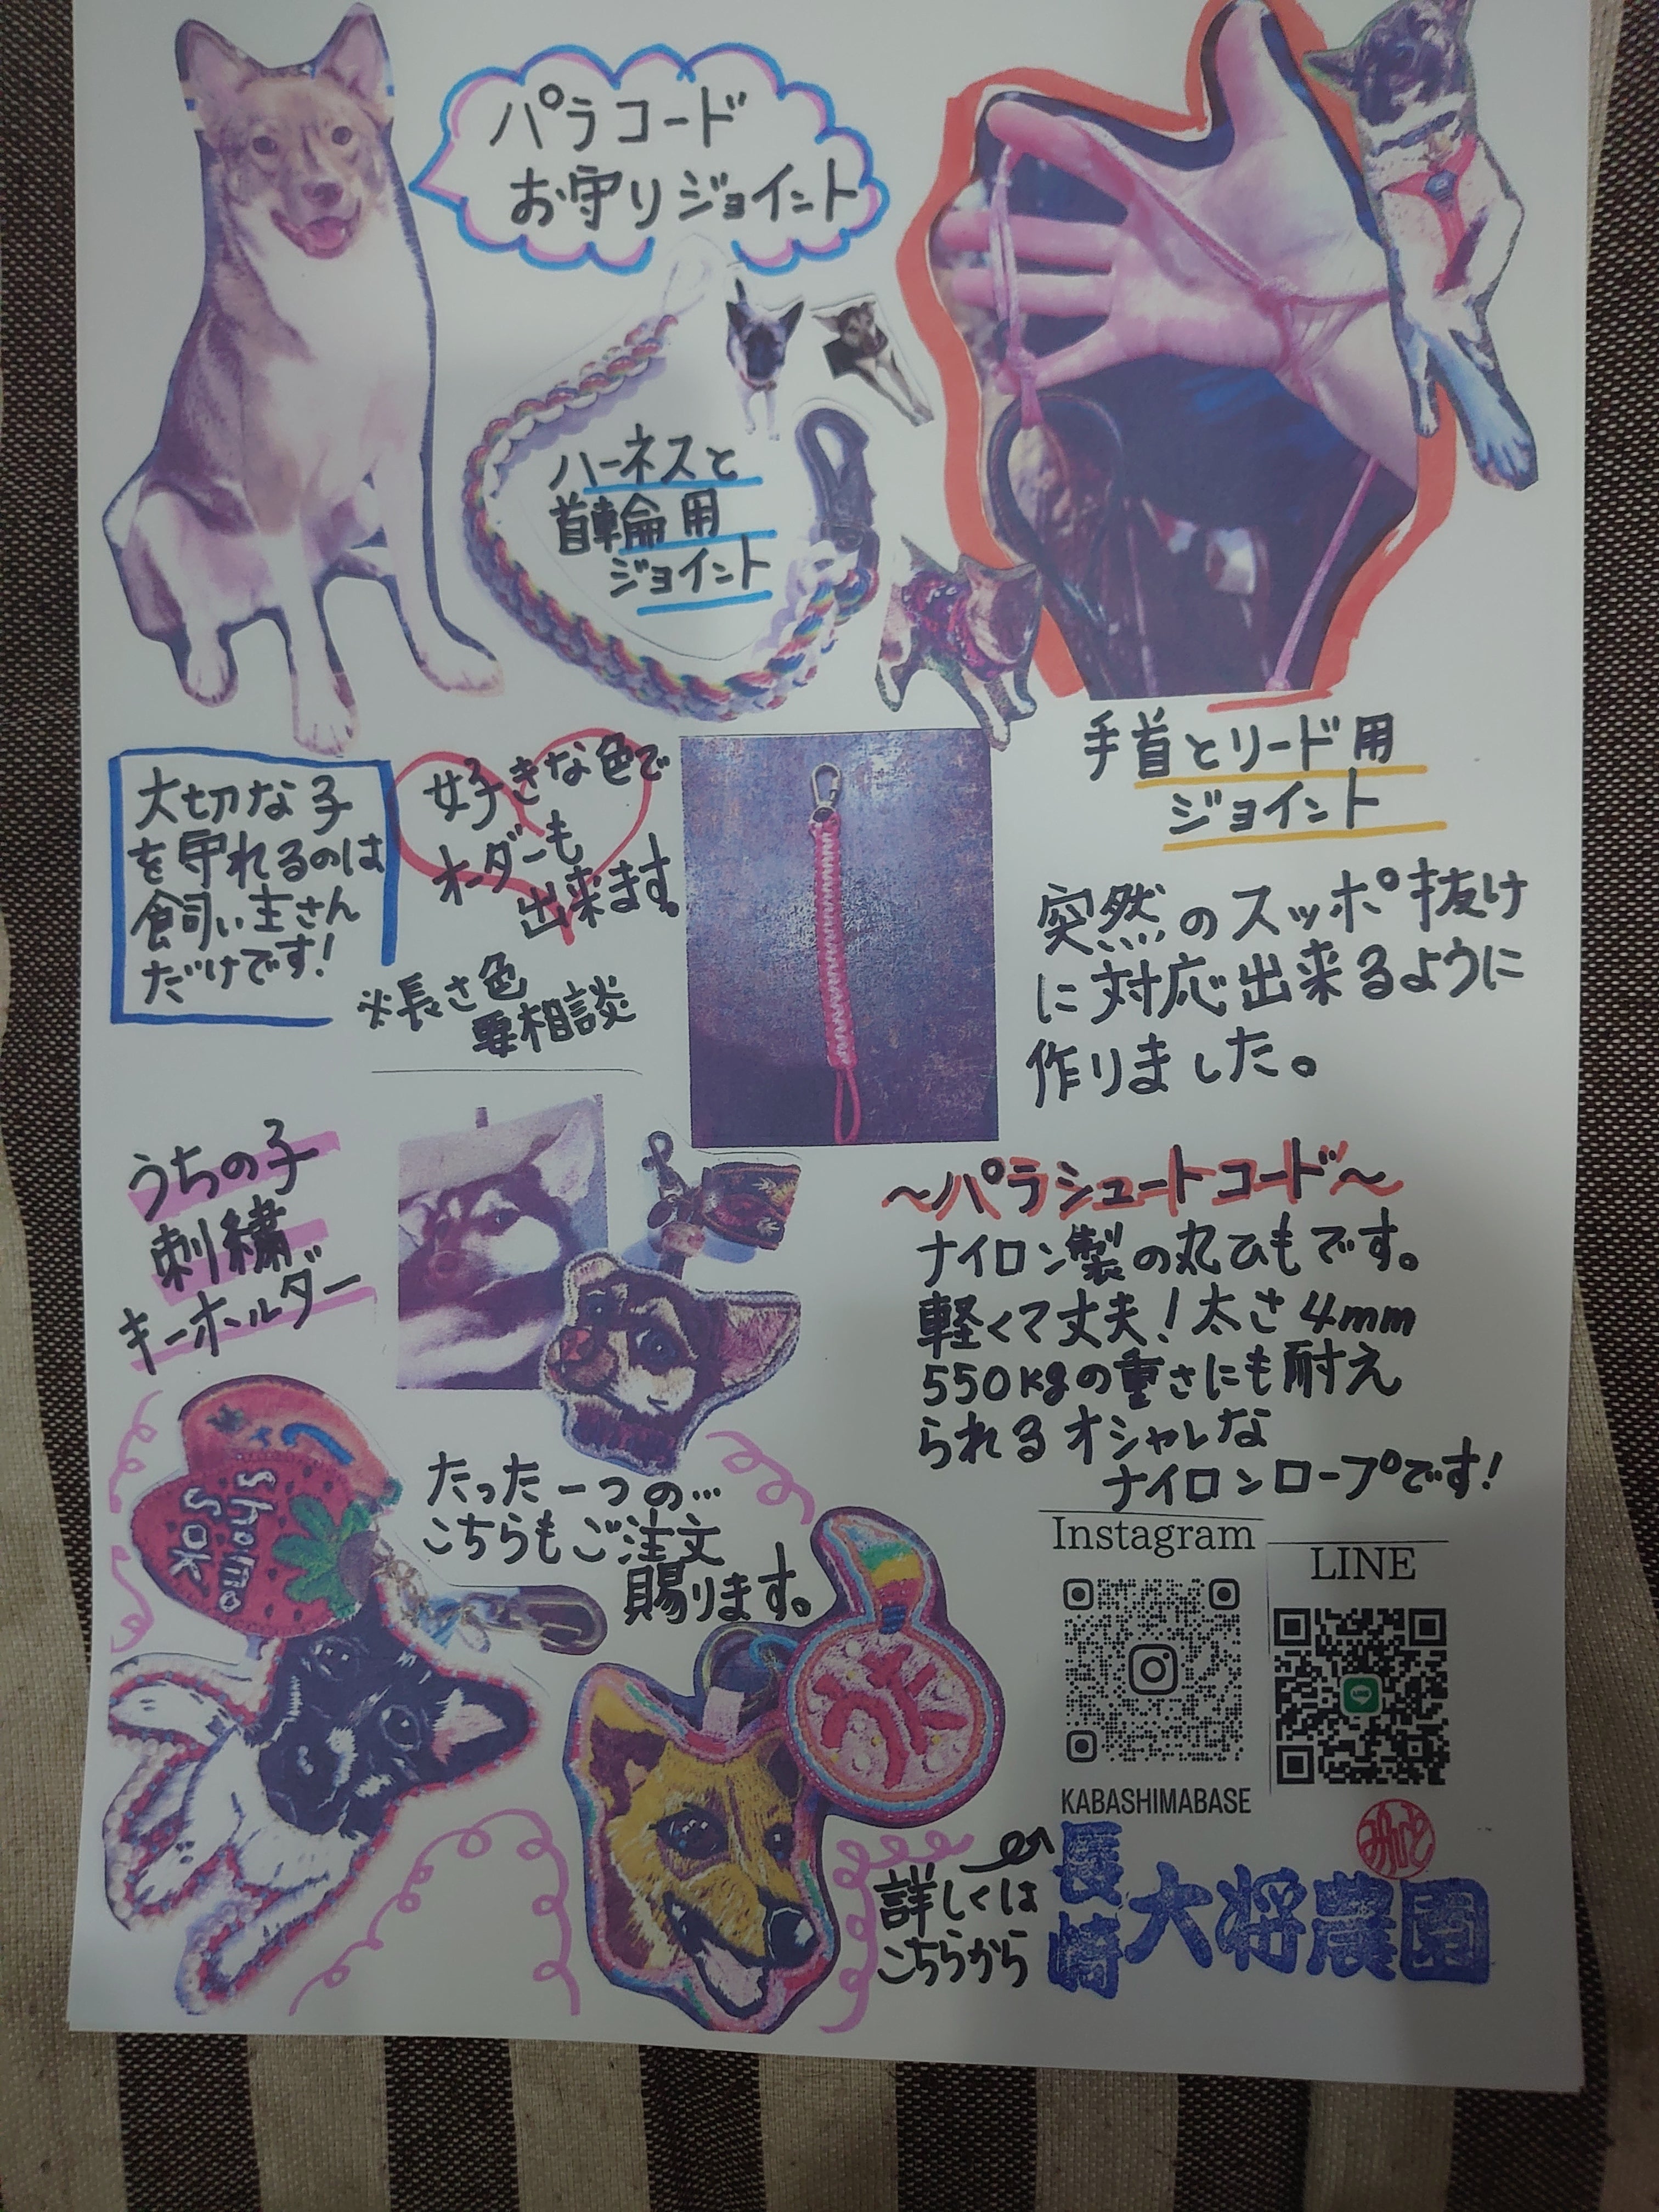 パラコード
お守りジョイント
ハーネスと
首輪用
ジョイント
手首とリード用
ジョイント
大切な子
を守れるのは
飼い主さん
だけです!
好きな色で
オーダーも
出来ます。
※長さ色
要相談
突然のスッポ抜け
に対応出来るように
作りました。
うちの子
刺繍
キーホルダー
〜パラシュートコード〜
ナイロン製の丸ひもです。
軽くて丈夫!太さ4mm
550kgの重さにも耐え
られるオシャレな
ナイロンロープです!
たった一つの…
こちらもご注文
賜ります。
Shomo
SOK
Instagram
LINE
LINE
KABASHIMABASE
詳しくは
こちらから
長崎
大将農園